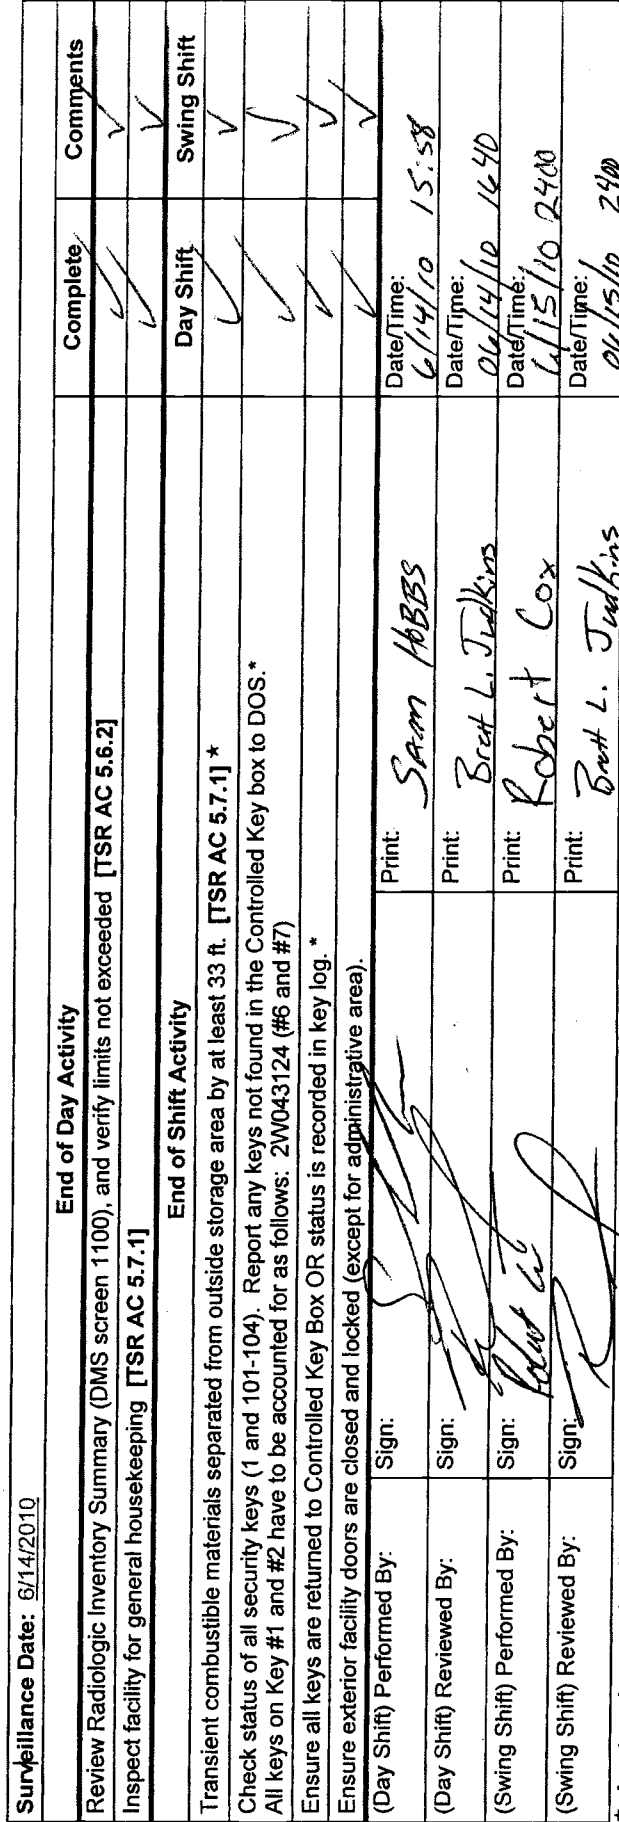 Surveillance Date: 6/14/2010
End of Day Activity Complete Comments
Review Radiologic Inventory Summary (DMS screen 1100), and verify limits not exceeded [TSR AC 5.6.2] ✓ ✓
Inspect facility for general housekeeping [TSR AC 5.7.1] ✓ ✓
End of Shift Activity Day Shift Swing Shift
Transient combustible materials separated from outside storage area by at least 33 ft. [TSR AC 5.7.1] * ✓ ✓
Check status of all security keys (1 and 101-104). Report any keys not found in the Controlled Key box to DOS.* ✓ ✓
All keys on Key #1 and #2 have to be accounted for as follows: 2W043124 (#6 and #7)
Ensure all keys are returned to Controlled Key Box OR status is recorded in key log. * ✓ ✓
Ensure exterior facility doors are closed and locked (except for administrative area). ✓ ✓
(Day Shift) Performed By: Sign: Print: Sam HOBBS Date/Time: 6/14/10 15:58
(Day Shift) Reviewed By: Sign: Print: Brett L. Judkins Date/Time: 06/14/10 1640
(Swing Shift) Performed By: Sign: Print: Robert Cox Date/Time: 6/15/10 2400
(Swing Shift) Reviewed By: Sign: Print: Brett L. Judkins Date/Time: 06/15/10 2400